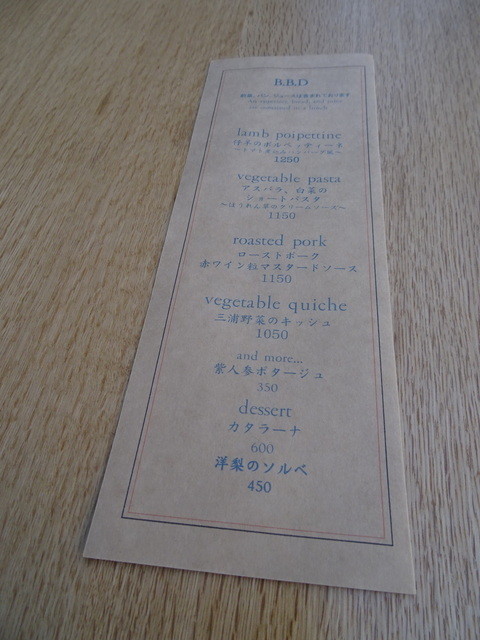 B.B.D
前菜、パン、ジュースは含まれております
lamb polpettine
仔羊のポルペッティーネ
1250
vegetable pasta
アスパラ、白菜の
ショートパスタ
〜ほうれん草のクリームソース〜
1150
roasted pork
ローストポーク
赤ワイン粒マスタードソース
1150
vegetable quiche
三浦野菜のキッシュ
1050
and more...
紫人参ポタージュ
350
dessert
カタラーナ
600
洋梨のソルベ
450